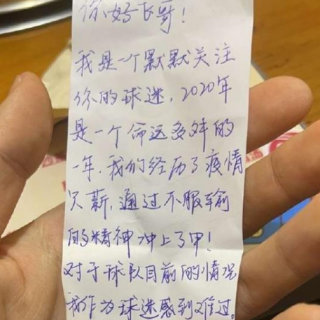 你好飞哥!
我是一个默默关注
你的球迷,2020年
是一个命运多舛的
一年,我们经历了疫情
欠薪,通过不服输
的精神冲上了甲!
对于球队目前的情况
我作为球迷感到难过,